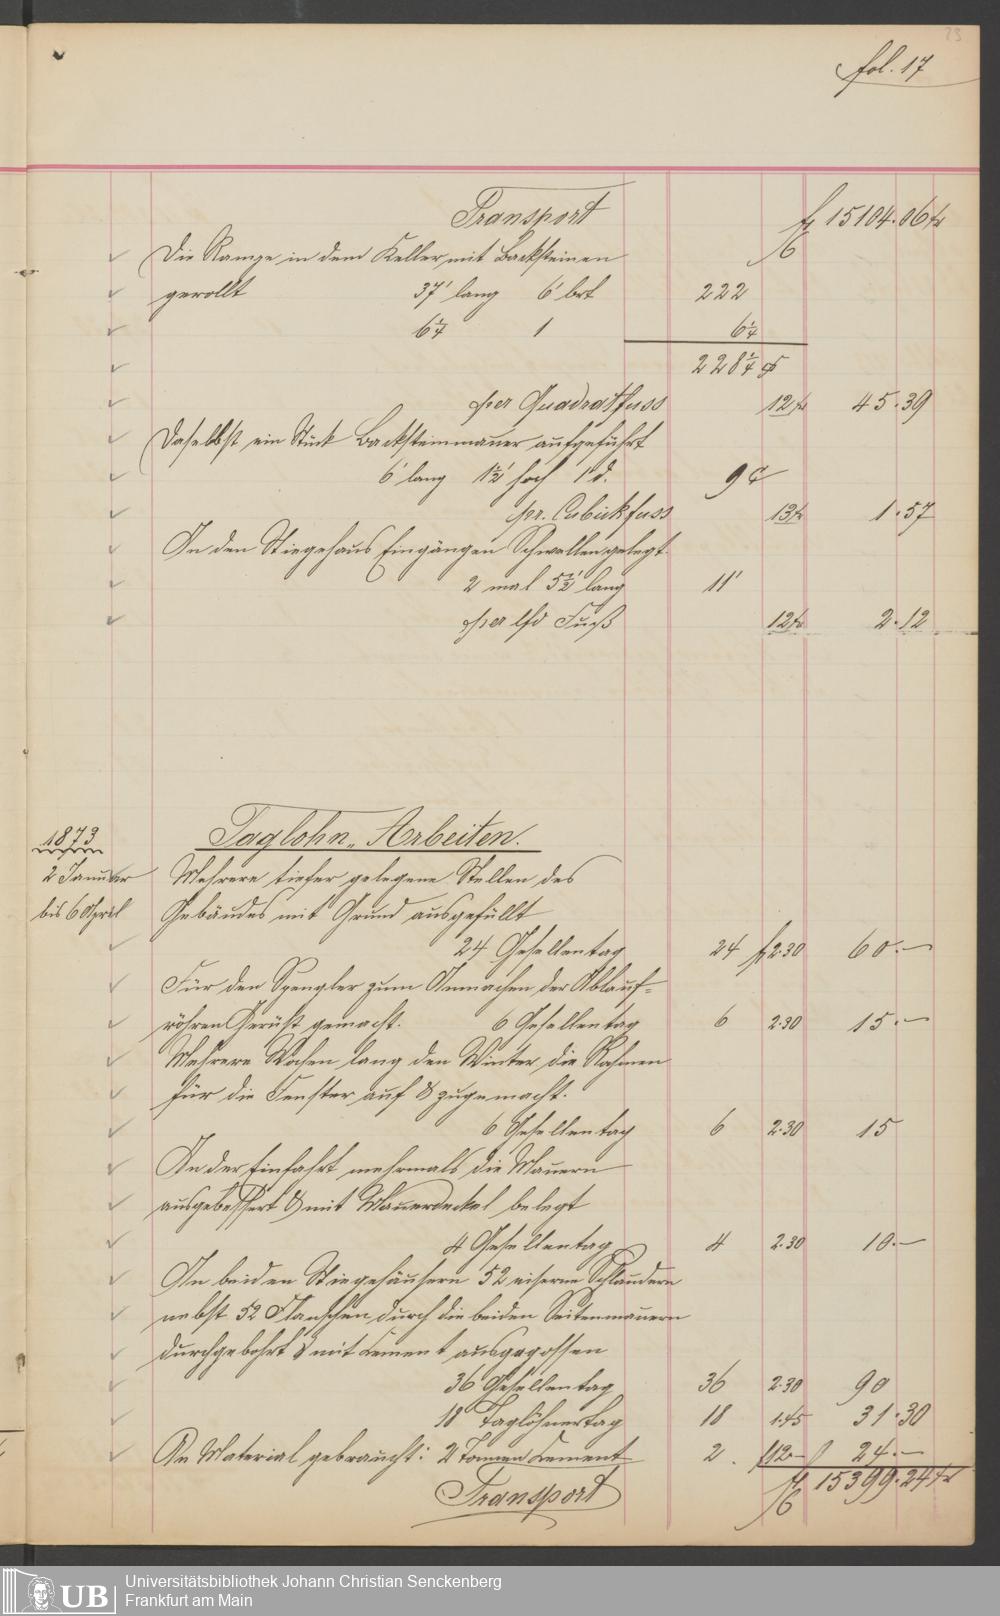 23
fol. 17
Transport fl 15104.06 kr
Die Rampe in dem Keller mit Backsteinen
gerollt 37' lang 6' brt 222
6 1/4 1 6 1/4
228 1/4
per Quadratfuss 12 kr 45.39
Daselbst ein Stück Backsteinmauer aufgeführt
6' lang 1 1/2' hoch 1' d. 9 C
pr. Cubickfuss 13 kr 1.57
In den Stiegehaus Eingängen Schwellen gelegt
2 mal 5 1/2' lang 11'
per lfd Fuß 12 kr 2.12
1873 Taglohn-Arbeiten.
2 Januar Mehrere tiefer gelegene Stellen des
bis 6 April Gebäudes mit Grund ausgefüllt
24 Gesellentag 24 fl 2.30 60.—
Für den Spengler zum Anmachen der Ablauf=
röhren Gerüst gemacht. 6 Gesellentag 6 2.30 15.—
Mehrere Wochen lang den Winter die Rahmen
für die Fenster auf & zugemacht.
6 Gesellentag 6 2.30 15
In der Einfahrt mehrmals die Mauern
ausgebessert & mit Mauerdeckel belegt
4 Gesellentag 4 2.30 10.—
In beiden Stiegehäusern 52 eiserne Schlaudern
nebst 52 Flanschen durch die beiden Seitenmauern
durchgebohrt & mit Cement ausgegossen
36 Gesellentag 36 2.30 90
18 Taglöhnertag 18 1.45 31.30
An Material gebraucht: 2 Tonnen Cement 2. fl 12— 24.—
Transport fl 15399.24 kr
UB
Universitätsbibliothek Johann Christian Senckenberg
Frankfurt am Main